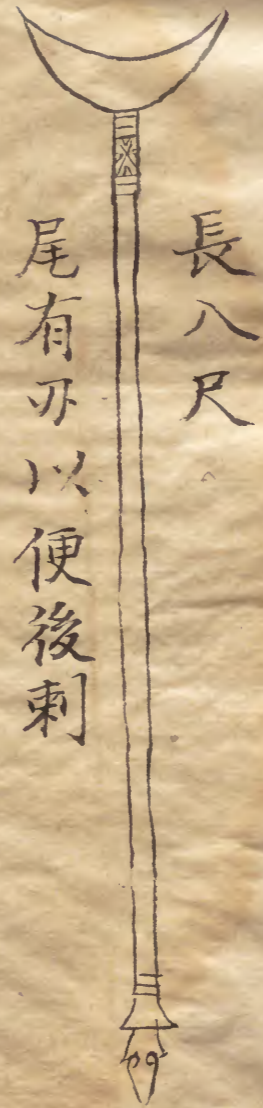 長八尺
尾有刃以便後刺